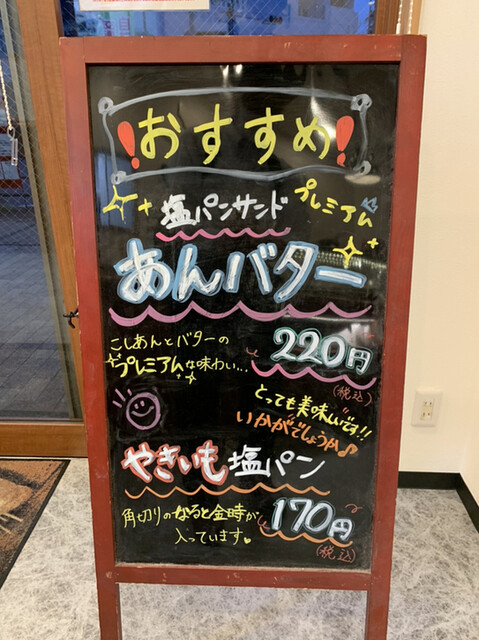 !おすすめ!
塩パンサンド プレミアム
あんバター
こしあんとバターの
プレミアムな味わい...
220円
(税込)
とっても美味しいです!!
いかがでしょうか♪
やきいも塩パン
角切りのなると金時が
入っています♥
170円
(税込)